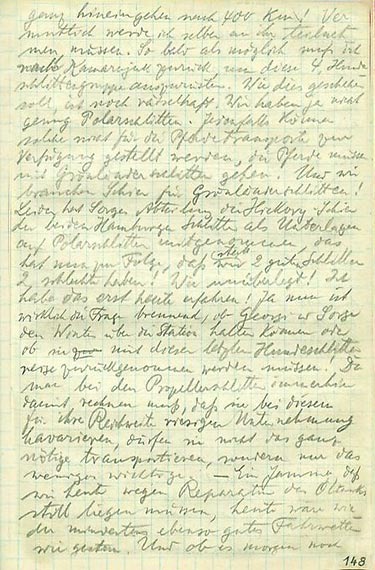 ganz hineingehen nach 400 Km! Ver-
mutlich werde ich selber an ihr teilneh-
men müssen. So bald als möglich muß ich
nach Kamarujuk zurück um diese 4. Hunde
schlittengruppe auszurüsten. Wie dies geschehen
soll, ist noch rätselhaft. Wir haben ja nicht
genug Polarschlitten. Jedenfalls können
solche nicht für die Pferdetransporte zur
Verfügung gestellt werden, die Pferde müssen
mit Grönländerschlitten gehen. Und wir
brauchen Schien für Grönländerschlitten!
Leider hat Sorges Abteilung die Hickory-Schien
der beiden Hamburger Schlitten als Unterlagen
auf Polarschlitten mitgenommen, das
hat nun zur Folge, daß wir statt 2 guter Schlitten
2 schlechte haben! Wie unüberlegt! Ich
habe das erst heute erfahren! Ja nun ist
wirklich die Frage brennend, ob Georgi u. Sorge
den Winter über die Station halten können oder
ob sie mit diesen letzten Hundeschlitten
reise zurückgenommen werden müssen! Da
man bei den Propellerschlitten immerhin
damit rechnen muß, daß sie bei diesem
für ihre Reichweite riesigen Unternehmung
havarieren, dürfen sie nicht das ganz
nötige transportieren, sondern nur das
weniger wichtige — Ein Jammer, daß
wir heute wegen Reparatur des Öltanks
still liegen müssen, heute wäre wie-
der mindestens ebenso gutes Fahrwetter
wie gestern. Und ob es morgen noch
148